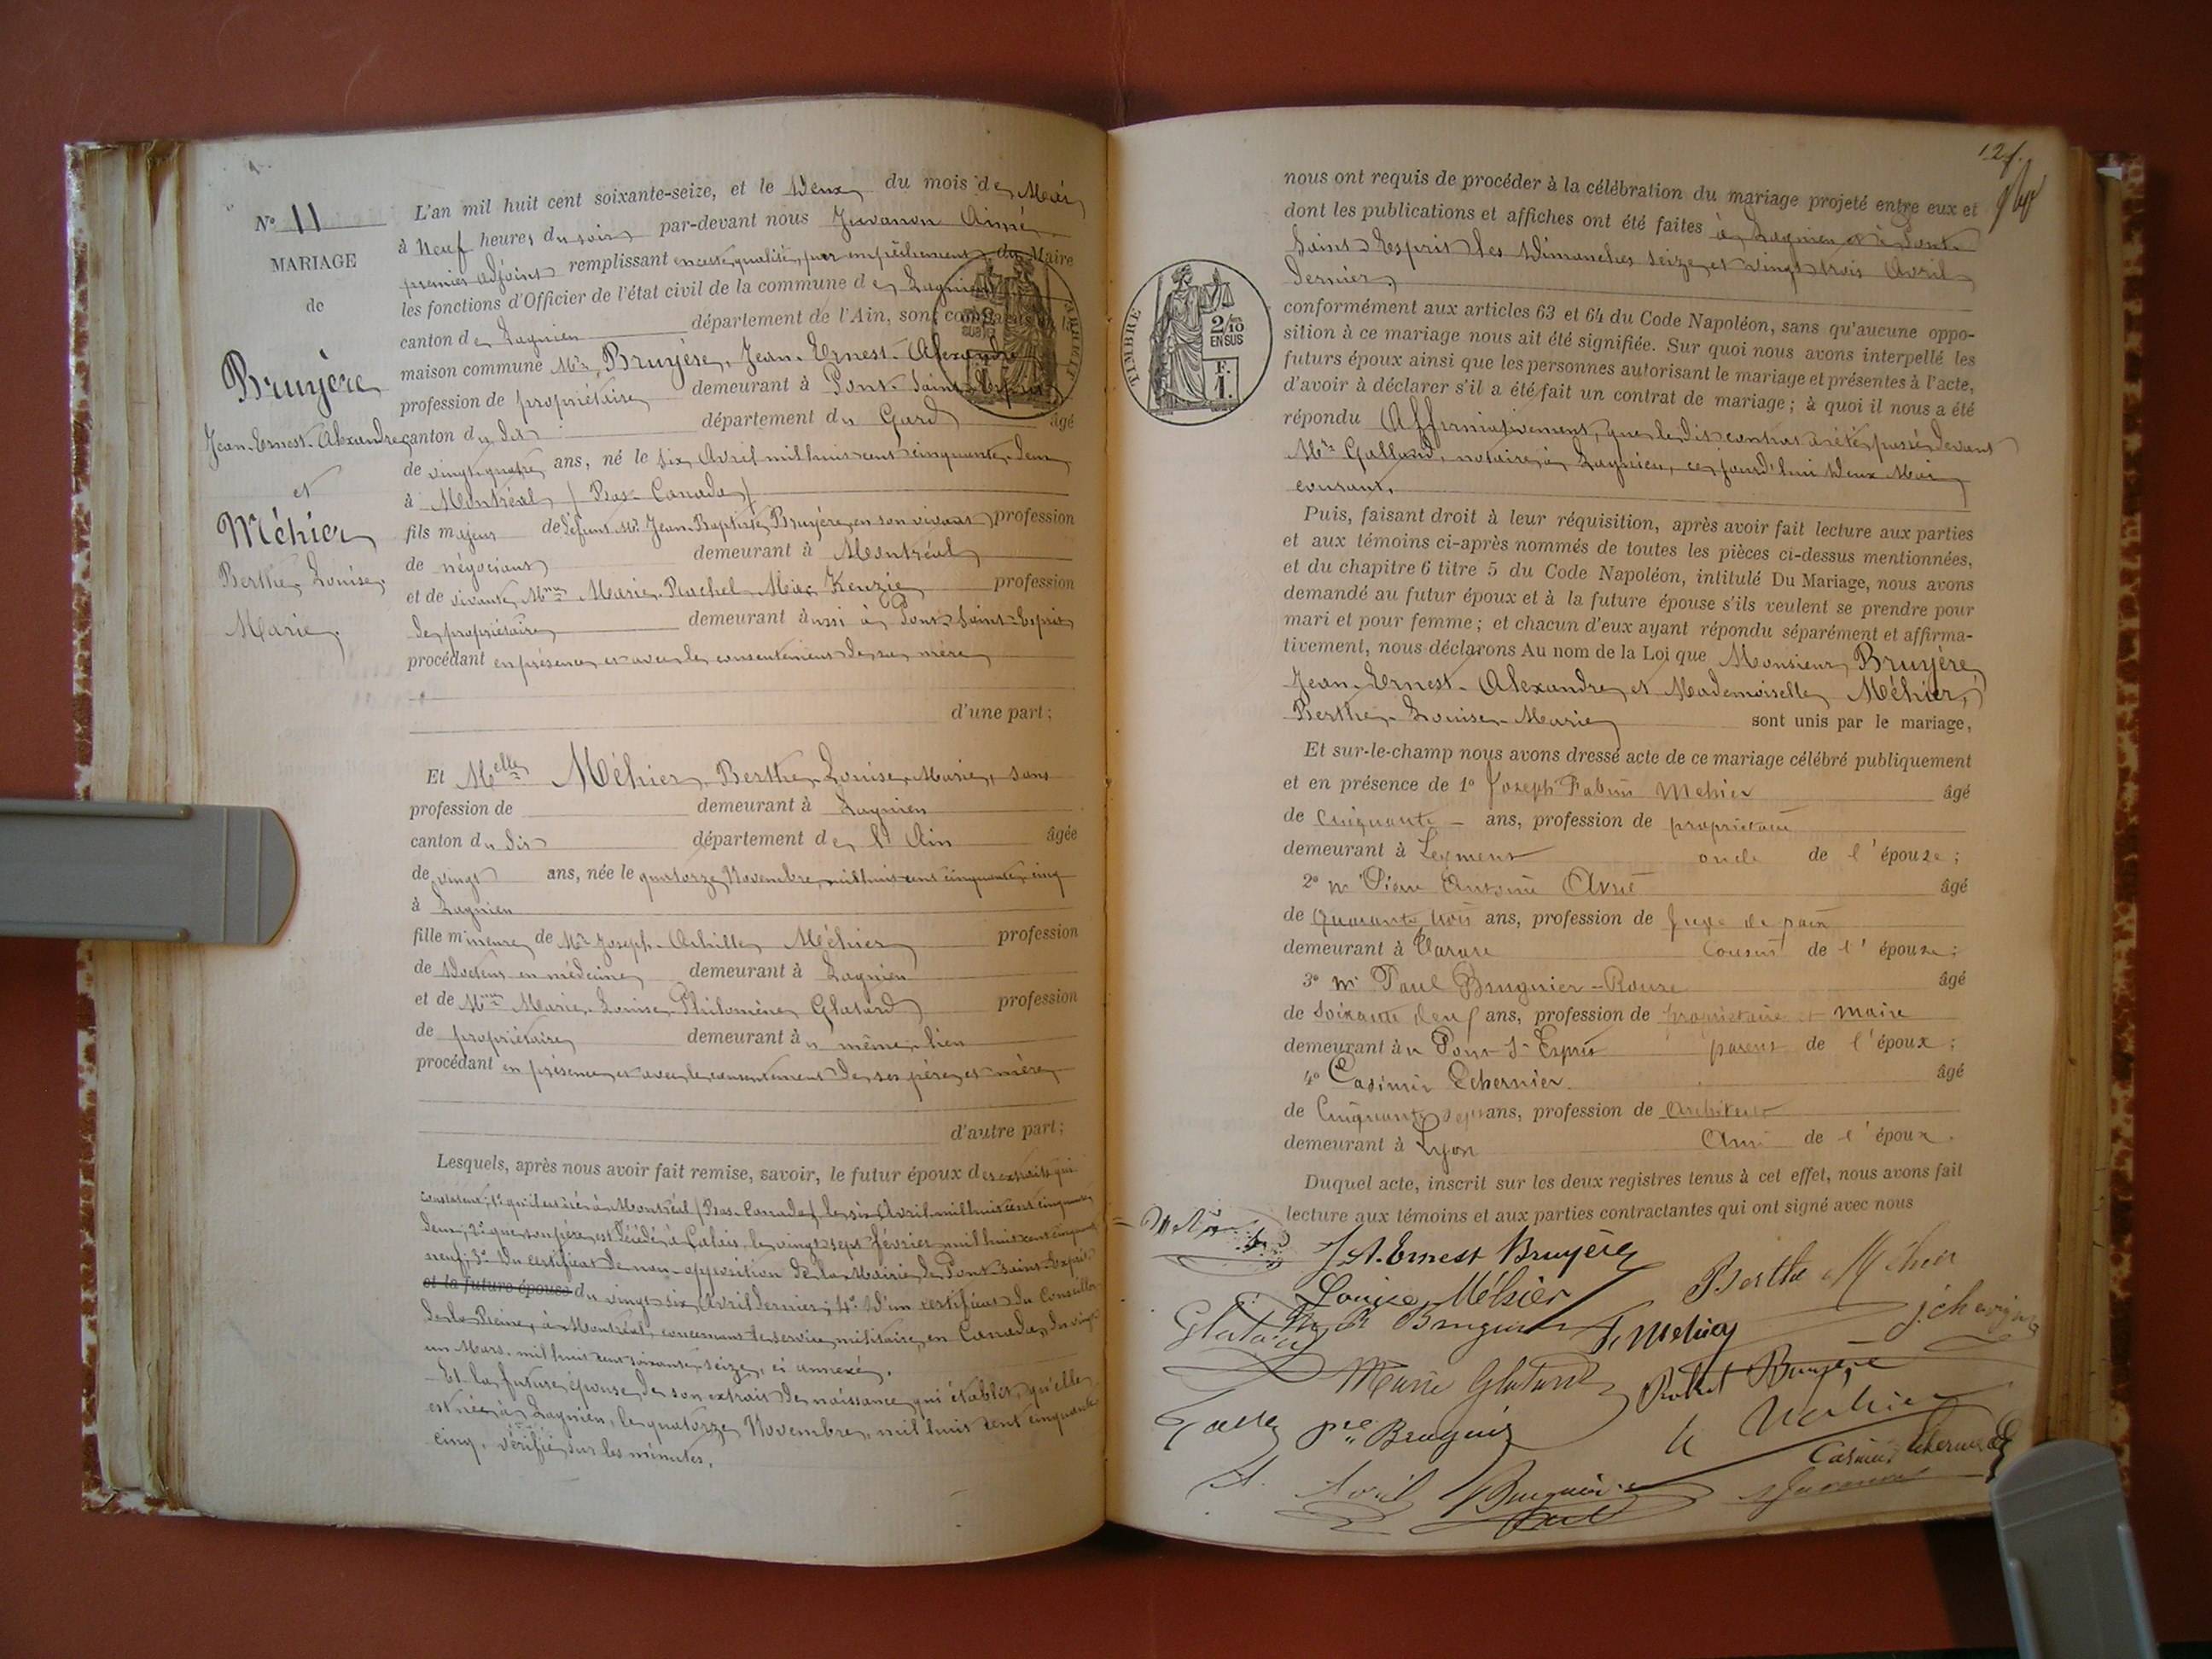 N° 11
MARIAGE
de
Bruyère
Jean-Ernest-Alexandre
et
Méhier
Berthe Louise
Marie.
L'an mil huit cent soixante-seize, et le Deux du mois de Mai
à Neuf heures du soir par-devant nous Juvanon Aimé
premier adjoint remplissant en cette qualité, par empêchement du Maire
les fonctions d'Officier de l'état civil de la commune de Lagnieu
canton de Lagnieu département de l'Ain, sont comparus en la
maison commune Mr. Bruyère, Jean-Ernest-Alexandre
profession de propriétaire demeurant à Pont-Saint-Esprit
canton du dit département du Gard âgé
de vingt-quatre ans, né le six Avril mil huit cent cinquante-deux
à Montréal (Bas-Canada)
fils majeur de défunt Mr. Jean-Baptiste Bruyère, en son vivant profession
de négociant demeurant à Montréal
et de vivante Mme Marie-Rachel Mac Kenzie profession
de propriétaire demeurant aussi à Pont-Saint-Esprit
procédant en présence et avec le consentement de sa mère
d'une part;
Et Melle Méhier, Berthe-Louise-Marie, sans
profession de demeurant à Lagnieu
canton du dit département de l'Ain âgée
de vingt ans, née le quatorze Novembre mil huit cent cinquante-cinq
à Lagnieu
fille mineure de Mr Joseph-Achille Méhier profession
de Docteur en médecine demeurant à Lagnieu
et de Mme Marie-Louise Philomène Glatard profession
de propriétaire demeurant au même lieu
procédant en présence et avec le consentement de ses père et mère
d'autre part;
Lesquels, après nous avoir fait remise, savoir, le futur époux des extraits qui
constatent; 1° qu'il est né à Montréal (Bas-Canada) le six Avril mil huit cent cinquante
deux; 2° que son père est décédé à Calais, le vingt-sept février mil huit cent cinquante
neuf; 3° du certificat de non-opposition de la Mairie de Pont-Saint-Esprit
et la future épouse du vingt-six Avril dernier; 4° d'un certificat du Conseiller
de la Reine, à Montréal, concernant le service militaire en Canada, du vingt
un Mars mil huit cent soixante-seize, ci annexé.
Et la future épouse, de son extrait de naissance qui établit, qu'elle
est née à Lagnieu, le quatorze Novembre, mil huit cent cinquante
cinq, vérifié sur les minutes.
121.
nous ont requis de procéder à la célébration du mariage projeté entre eux et
dont les publications et affiches ont été faites à Lagnieu et à Pont-
Saint-Esprit les Dimanches seize et vingt trois Avril
dernier
TIMBRE
2/10
EN SUS
F.
1.
conformément aux articles 63 et 64 du Code Napoléon, sans qu'aucune oppo-
sition à ce mariage nous ait été signifiée. Sur quoi nous avons interpellé les
futurs époux ainsi que les personnes autorisant le mariage et présentes à l'acte,
d'avoir à déclarer s'il a été fait un contrat de mariage; à quoi il nous a été
répondu Affirmativement, que le dit contrat a été passé devant
Me Galland, notaire à Lagnieu, ce jourd'hui Deux Mai
courant.
Puis, faisant droit à leur réquisition, après avoir fait lecture aux parties
et aux témoins ci-après nommés de toutes les pièces ci-dessus mentionnées,
et du chapitre 6 titre 5 du Code Napoléon, intitulé Du Mariage, nous avons
demandé au futur époux et à la future épouse s'ils veulent se prendre pour
mari et pour femme; et chacun d'eux ayant répondu séparément et affirma-
tivement, nous déclarons Au nom de la Loi que Monsieur Bruyère
Jean-Ernest-Alexandre et Mademoiselle Méhier,
Berthe-Louise-Marie sont unis par le mariage,
Et sur-le-champ nous avons dressé acte de ce mariage célébré publiquement
et en présence de 1° Joseph Fabien Mehier âgé
de Cinquante ans, profession de propriétaire
demeurant à Leyment oncle de l'épouse;
2° Mr Pierre Antoine Avril âgé
de Quarante trois ans, profession de Juge de paix
demeurant à Tarare Cousin de l'épouse;
3° Mr Paul Bruguier-Roure âgé
de Soixante neuf ans, profession de propriétaire et maire
demeurant à Pont-St-Esprit parent de l'époux;
4° Casimir Echernier âgé
de Cinquante sept ans, profession de Architecte
demeurant à Lyon Ami de l'époux.
Duquel acte, inscrit sur les deux registres tenus à cet effet, nous avons fait
lecture aux témoins et aux parties contractantes qui ont signé avec nous
J.A. Ernest Bruyère
Berthe Méhier
Louise Méhier
Glatard
F. Mehier
Marie Glatard
Robert Bruyère
Casimir Echernier
A. Avril
Juvanon